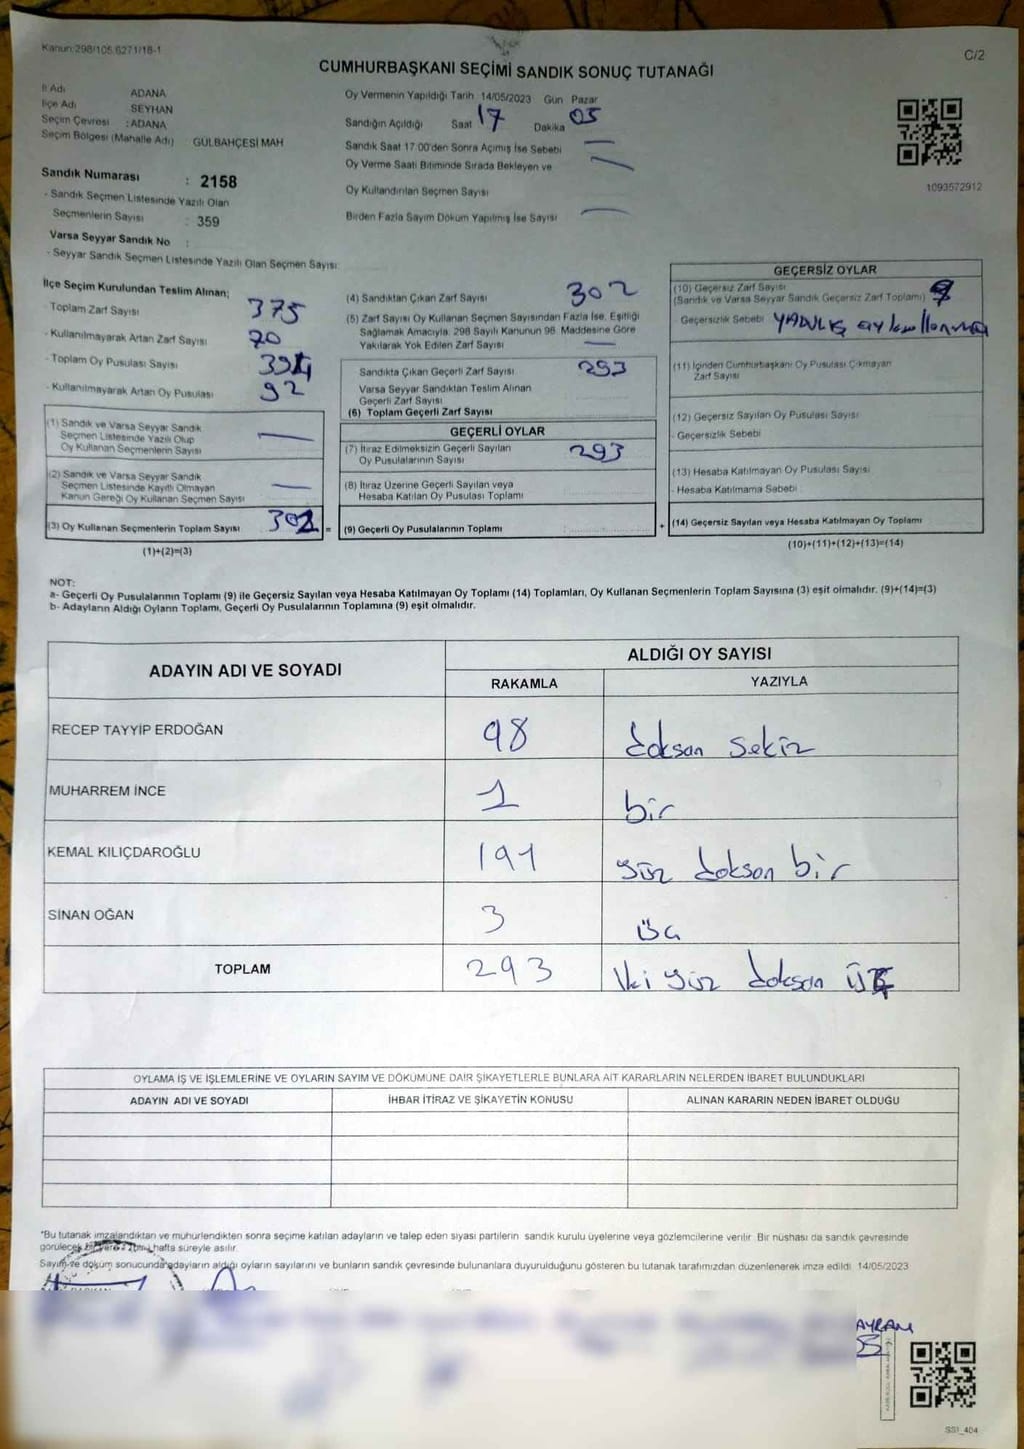 Kanun:298/105.6271/18-1
C/2
CUMHURBAŞKANI SEÇİMİ SANDIK SONUÇ TUTANAĞI
İl Adı ADANA
İlçe Adı SEYHAN
Seçim Çevresi : ADANA
Seçim Bölgesi (Mahalle Adı) GÜLBAHÇESİ MAH
Sandık Numarası : 2158
- Sandık Seçmen Listesinde Yazılı Olan
Seçmenlerin Sayısı : 359
Varsa Seyyar Sandık No :
- Seyyar Sandık Seçmen Listesinde Yazılı Olan Seçmen Sayısı:
Oy Vermenin Yapıldığı Tarih 14/05/2023 Gün Pazar
Sandığın Açıldığı Saat 17 Dakika 05
Sandık Saat 17:00'den Sonra Açımış İse Sebebi —
Oy Verme Saati Bitiminde Sırada Bekleyen ve —
Oy Kullandırılan Seçmen Sayısı
Birden Fazla Sayım Döküm Yapılmış İse Sayısı —
1093572912
İlçe Seçim Kurulundan Teslim Alınan;
Toplam Zarf Sayısı 375
- Kullanılmayarak Artan Zarf Sayısı 70
- Toplam Oy Pusulası Sayısı
- Kullanılmayarak Artan Oy Pusulası 92
(1) Sandık ve Varsa Seyyar Sandık
Seçmen Listesinde Yazılı Olup —
Oy Kullanan Seçmenlerin Sayısı
(2) Sandık ve Varsa Seyyar Sandık
Seçmen Listesinde Kayıtlı Olmayan —
Kanun Gereği Oy Kullanan Seçmen Sayısı
(3) Oy Kullanan Seçmenlerin Toplam Sayısı 302 =
(1)+(2)=(3)
(4) Sandıktan Çıkan Zarf Sayısı 302
(5) Zarf Sayısı Oy Kullanan Seçmen Sayısından Fazla İse, Eşitliği
Sağlamak Amacıyla, 298 Sayılı Kanunun 98. Maddesine Göre
Yakılarak Yok Edilen Zarf Sayısı —
Sandıkta Çıkan Geçerli Zarf Sayısı 293
Varsa Seyyar Sandıktan Teslim Alınan
Geçerli Zarf Sayısı
(6) Toplam Geçerli Zarf Sayısı
GEÇERLİ OYLAR
(7) İtiraz Edilmeksizin Geçerli Sayılan
Oy Pusulalarının Sayısı 293
(8) İtiraz Üzerine Geçerli Sayılan veya
Hesaba Katılan Oy Pusulası Toplamı
(9) Geçerli Oy Pusulalarının Toplamı +
GEÇERSİZ OYLAR
(10) Geçersiz Zarf Sayısı
(Sandık ve Varsa Seyyar Sandık Geçersiz Zarf Toplamı)
Geçersizlik Sebebi
(11) İçinden Cumhurbaşkanı Oy Pusulası Çıkmayan
Zarf Sayısı
(12) Geçersiz Sayılan Oy Pusulası Sayısı
- Geçersizlik Sebebi
(13) Hesaba Katılmayan Oy Pusulası Sayısı
- Hesaba Katılmama Sebebi
(14) Geçersiz Sayılan veya Hesaba Katılmayan Oy Toplamı
(10)+(11)+(12)+(13)=(14)
NOT:
a- Geçerli Oy Pusulalarının Toplamı (9) ile Geçersiz Sayılan veya Hesaba Katılmayan Oy Toplamı (14) Toplamları, Oy Kullanan Seçmenlerin Toplam Sayısına (3) eşit olmalıdır. (9)+(14)=(3)
b- Adayların Aldığı Oyların Toplamı, Geçerli Oy Pusulalarının Toplamına (9) eşit olmalıdır.
ADAYIN ADI VE SOYADI ALDIĞI OY SAYISI
RAKAMLA YAZIYLA
RECEP TAYYİP ERDOĞAN 98 doksan sekiz
MUHARREM İNCE 1 bir
KEMAL KILIÇDAROĞLU 191 yüz doksan bir
SİNAN OĞAN 3 üç
TOPLAM 293 İki yüz doksan üç
OYLAMA İŞ VE İŞLEMLERİNE VE OYLARIN SAYIM VE DÖKÜMÜNE DAİR ŞİKAYETLERLE BUNLARA AİT KARARLARIN NELERDEN İBARET BULUNDUKLARI
ADAYIN ADI VE SOYADI İHBAR İTİRAZ VE ŞİKAYETİN KONUSU ALINAN KARARIN NEDEN İBARET OLDUĞU
*Bu tutanak imzalandıktan ve mühürlendikten sonra seçime katılan adayların ve talep eden siyasi partilerin sandık kurulu üyelerine veya gözlemcilerine verilir. Bir nüshası da sandık çevresinde
görülecek bir yere hafta süreyle asılır.
Sayım ve döküm sonucunda adayların aldığı oyların sayılarını ve bunların sandık çevresinde bulunanlara duyurulduğunu gösteren bu tutanak tarafımızdan düzenlenerek imza edildi. 14/05/2023
SS1_404